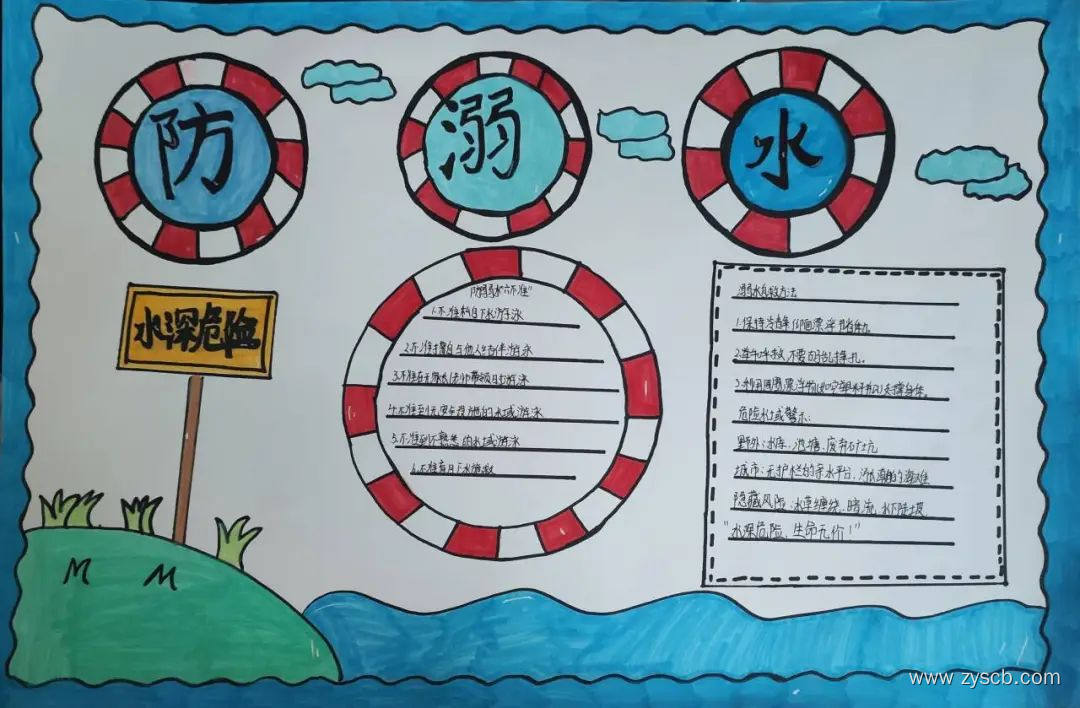 防溺水
水深危险
防溺水"六不准"
1.不准私自下水游泳
2.不准擅自与他人结伴游泳
3.不准在无家长/老师带领下游泳
4.不准到无安全设施的水域游泳
5.不准到不熟悉的水域游泳
6.不准盲目下水施救
溺水自救方法
1.保持冷静仰面漂浮
2.举手呼救,不要胡乱挣扎。
3.利用周围漂浮物
危险水域警示:
野外:水库、池塘、废弃矿坑
城市:无护栏的亲水平台、
隐藏风险:水草缠绕、暗流、水下陡坡
"水深危险、生命无价!"
www.zyscb.com